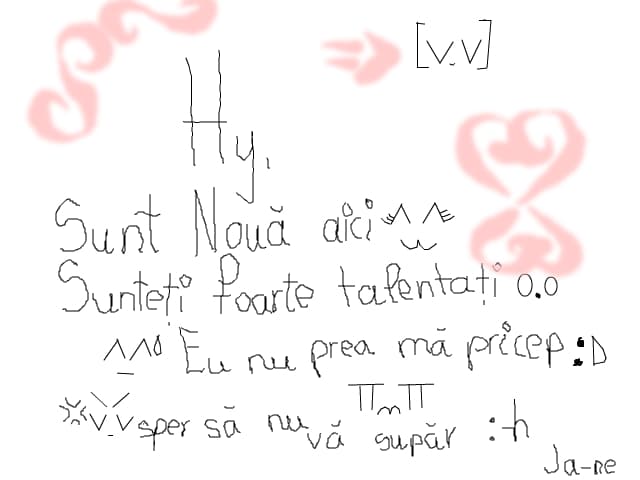 [v.v]
Hy,
Sunt Nouă aici ^w^
Sunteți foarte talentați o.o
^_^' Eu nu prea mă pricep :D
v.v sper să nu vă supăr :-h
Ja-ne